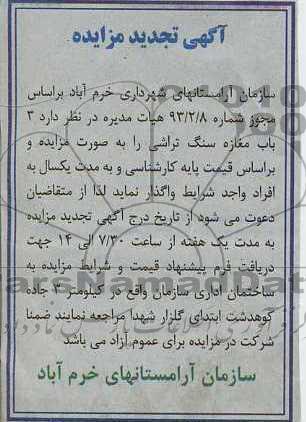 آگهی تجدید مزایده
سازمان آرامستانهای شهرداری خرم آباد براساس
مجوز شماره ۹۳/۲/۸ هیات مدیره در نظر دارد ۳
باب مغازه سنگ تراشی را به صورت مزایده و
براساس قیمت پایه کارشناسی و به مدت یکسال به
افراد واجد شرایط واگذار نماید لذا از متقاضیان
دعوت می شود از تاریخ درج آگهی تجدید مزایده
به مدت یک هفته از ساعت ۷/۳۰ الی ۱۴ جهت
دریافت فرم پیشنهاد قیمت و شرایط مزایده به
ساختمان اداری سازمان واقع در کیلومتر ۴ جاده
کوهدشت ابتدای گلزار شهدا مراجعه نمایند ضمنا
شرکت در مزایده برای عموم آزاد می باشد
سازمان آرامستانهای خرم آباد